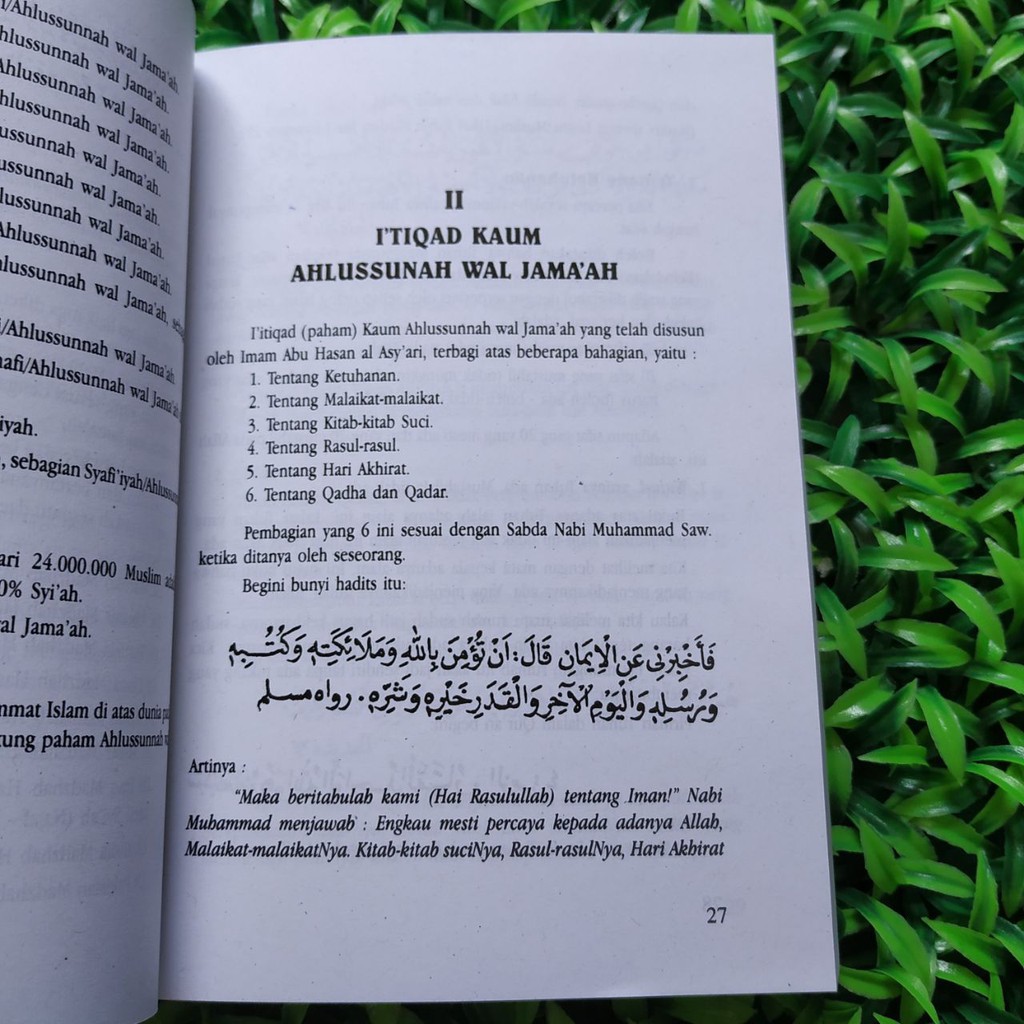 /Ahlussunnah wal Jama'ah.
hlussunnah wal Jama'ah.
Ahlussunnah wal Jama'ah.
hlussunnah wal Jama'ah.
ussunnah wal Jama'ah.
ussunnah wal Jama'ah.
lussunnah wal Jama'ah.
Ahlussunnah wal Jama'ah.
lussunnah wal Jama'ah,
i/Ahlussunnah wal Jama'ah
afi/Ahlussunnah wal Jama'ah
iyah.
, sebagian Syafi'iyah/Ahlussun
ari 24.000.000 Muslim
0% Syi'ah.
al Jama'ah.
mmat Islam di atas dunia
ung paham Ahlussunnah
II
I'TIQAD KAUM
AHLUSSUNAH WAL JAMA'AH
I'itiqad (paham) Kaum Ahlussunnah wal Jama'ah yang telah disusun
oleh Imam Abu Hasan al Asy'ari, terbagi atas beberapa bahagian, yaitu :
1. Tentang Ketuhanan.
2. Tentang Malaikat-malaikat.
3. Tentang Kitab-kitab Suci.
4. Tentang Rasul-rasul.
5. Tentang Hari Akhirat.
6. Tentang Qadha dan Qadar.
Pembagian yang 6 ini sesuai dengan Sabda Nabi Muhammad Saw.
ketika ditanya oleh seseorang.
Begini bunyi hadits itu:
فَأَخْبِرْنِى عَنِ الْاِيمَانِ قَالَ: اَنْ تُؤْمِنَ بِاللّٰهِ وَمَلَائِكَتِهِ وَكُتُبِهِ
وَرُسُلِهِ وَالْيَوْمِ الْآخِرِ وَالْقَدَرِ خَيْرِهِ وَشَرِّهِ. رواه مسلم
Artinya :
"Maka beritahulah kami (Hai Rasulullah) tentang Iman!" Nabi
Muhammad menjawab : Engkau mesti percaya kepada adanya Allah,
Malaikat-malaikatNya. Kitab-kitab suciNya, Rasul-rasulNya, Hari Akhirat
27